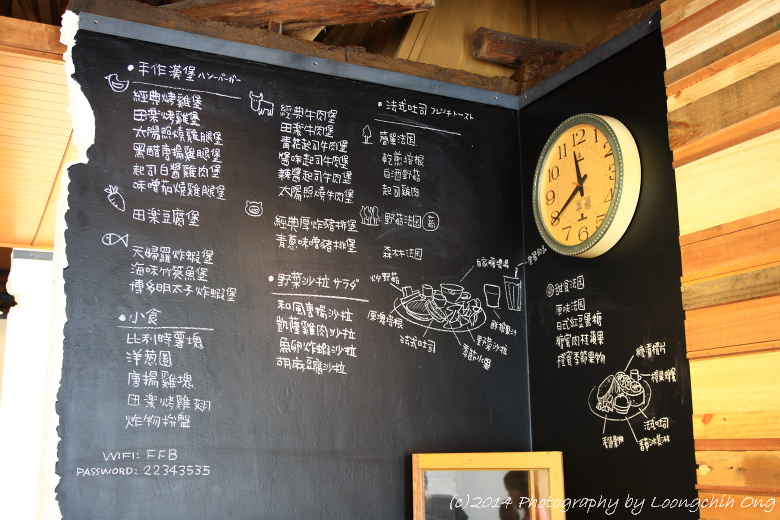 • 手作漢堡 ハンバーガー
經典烤雞堡
田樂烤雞堡
太陽照燒雞腿堡
黑醋唐揚雞腿堡
起司白醬雞肉堡
味噌茄燒雞腿堡
田樂豆腐堡
天婦羅炸蝦堡
海味竹筴魚堡
博多明太子炸蝦堡
• 小食
比利時薯塊
洋蔥圈
唐揚雞塊
田樂烤雞翅
炸物拼盤
WIFI: FFB
PASSWORD: 22343535
經典牛肉堡
田樂牛肉堡
青花起司牛肉堡
醬味起司牛肉堡
辣醬起司牛肉堡
太陽照燒牛肉堡
經典厚炸豬排堡
青蔥味噌豬排堡
• 野菜沙拉 サラダ
和風唐揚沙拉
凱薩雞肉沙拉
魚卵炸蝦沙拉
胡麻豆腐沙拉
• 法式吐司 フレンチトースト
乾煎培根
白酒野菇
起司雞肉
野菇法國
森林法國
炒野菇
厚塊培根
法式吐司
野菜沙拉
鮮榨果汁
甜食法國
原味法國
日式紅豆果糖
蜜糖肉桂蘋果
楓糖季節果物
法式吐司
12
1
2
3
4
5
6
7
8
9
10
11
(c)2014 Photography by Loongchih Ong